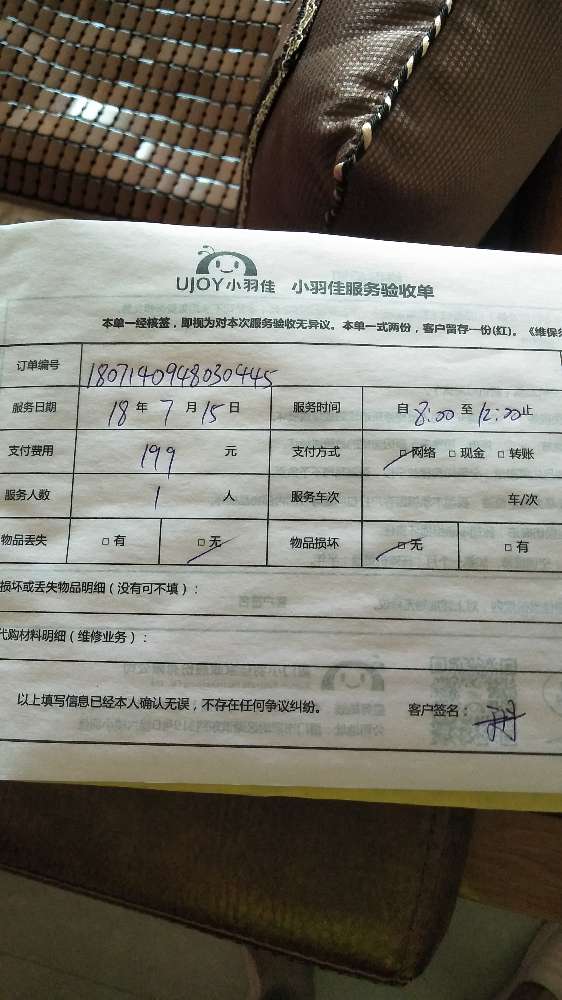 UJOY小羽佳 小羽佳服务验收单
本单一经核签，即视为对本次服务验收无异议。本单一式两份，客户留存一份(红)。《维保
订单编号 1807140948030445
服务日期 18 年 7 月 15 日 服务时间 自 8:00 至 12:00 止
支付费用 199 元 支付方式 □ 网络 □ 现金 □ 转账
服务人数 1 人 服务车次 车/次
物品丢失 □ 有 □ 无 物品损坏 □ 无 □ 有
损坏或丢失物品明细（没有可不填）：
代购材料明细（维修业务）：
以上填写信息已经本人确认无误，不存在任何争议纠纷。 客户签名：